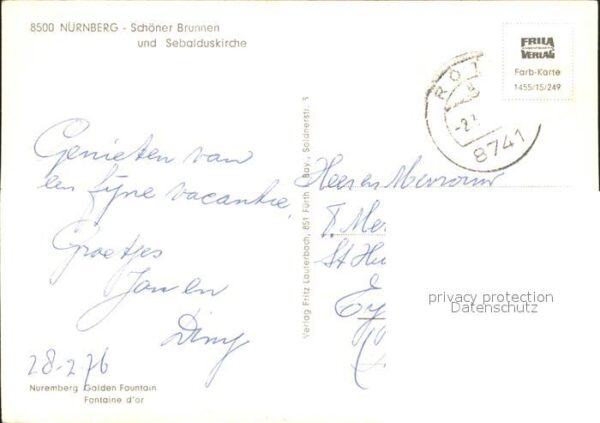 8500 NÜRNBERG - Schöner Brunnen
und Sebalduskirche
FRILA
VERLAG
Farb-Karte
1455/15/249
8741
Genieten van
een fijne vacantie.
Groetjes
Jan en
Diny
28-2-76
Verlag Fritz Lauterbach, 851 Fürth i. Bay., Soldnerstr. 3
Heer en Mevrouw
St Hu
privacy protection
Datenschutz
Nuremberg Golden Fountain
Fontaine d'or